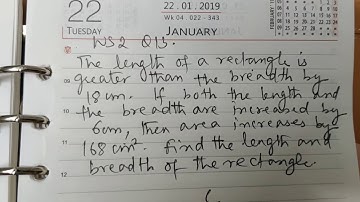 22
TUESDAY
22 . 01 . 2019
Wk 04 . 022 - 343
JANUARY
WS2 Q13.
The length of a rectangle is
greater than the breadth by
18 cm. If both the length and
the breadth are increased by
6cm, then area increases by
168 cm². find the length and
breadth of the rectangle.
09
10
11
12